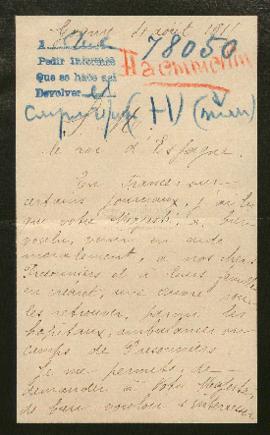 août 191
A
78050
Pedir informes
Que se hace así
Devolver
le roi d'Espagne.
En France, sur
certains journaux, j'ai lu
que votre Majesté, a bien
voulu, venir en aide
moralement, à nos chers
Prisonniers et à leurs familles
en créant, une œuvre pour
les retrouver, parmi les
hôpitaux, ambulances ou
camps de Prisonniers
Je me permets, de
demander à votre Majesté,
de bien vouloir s'intéresser